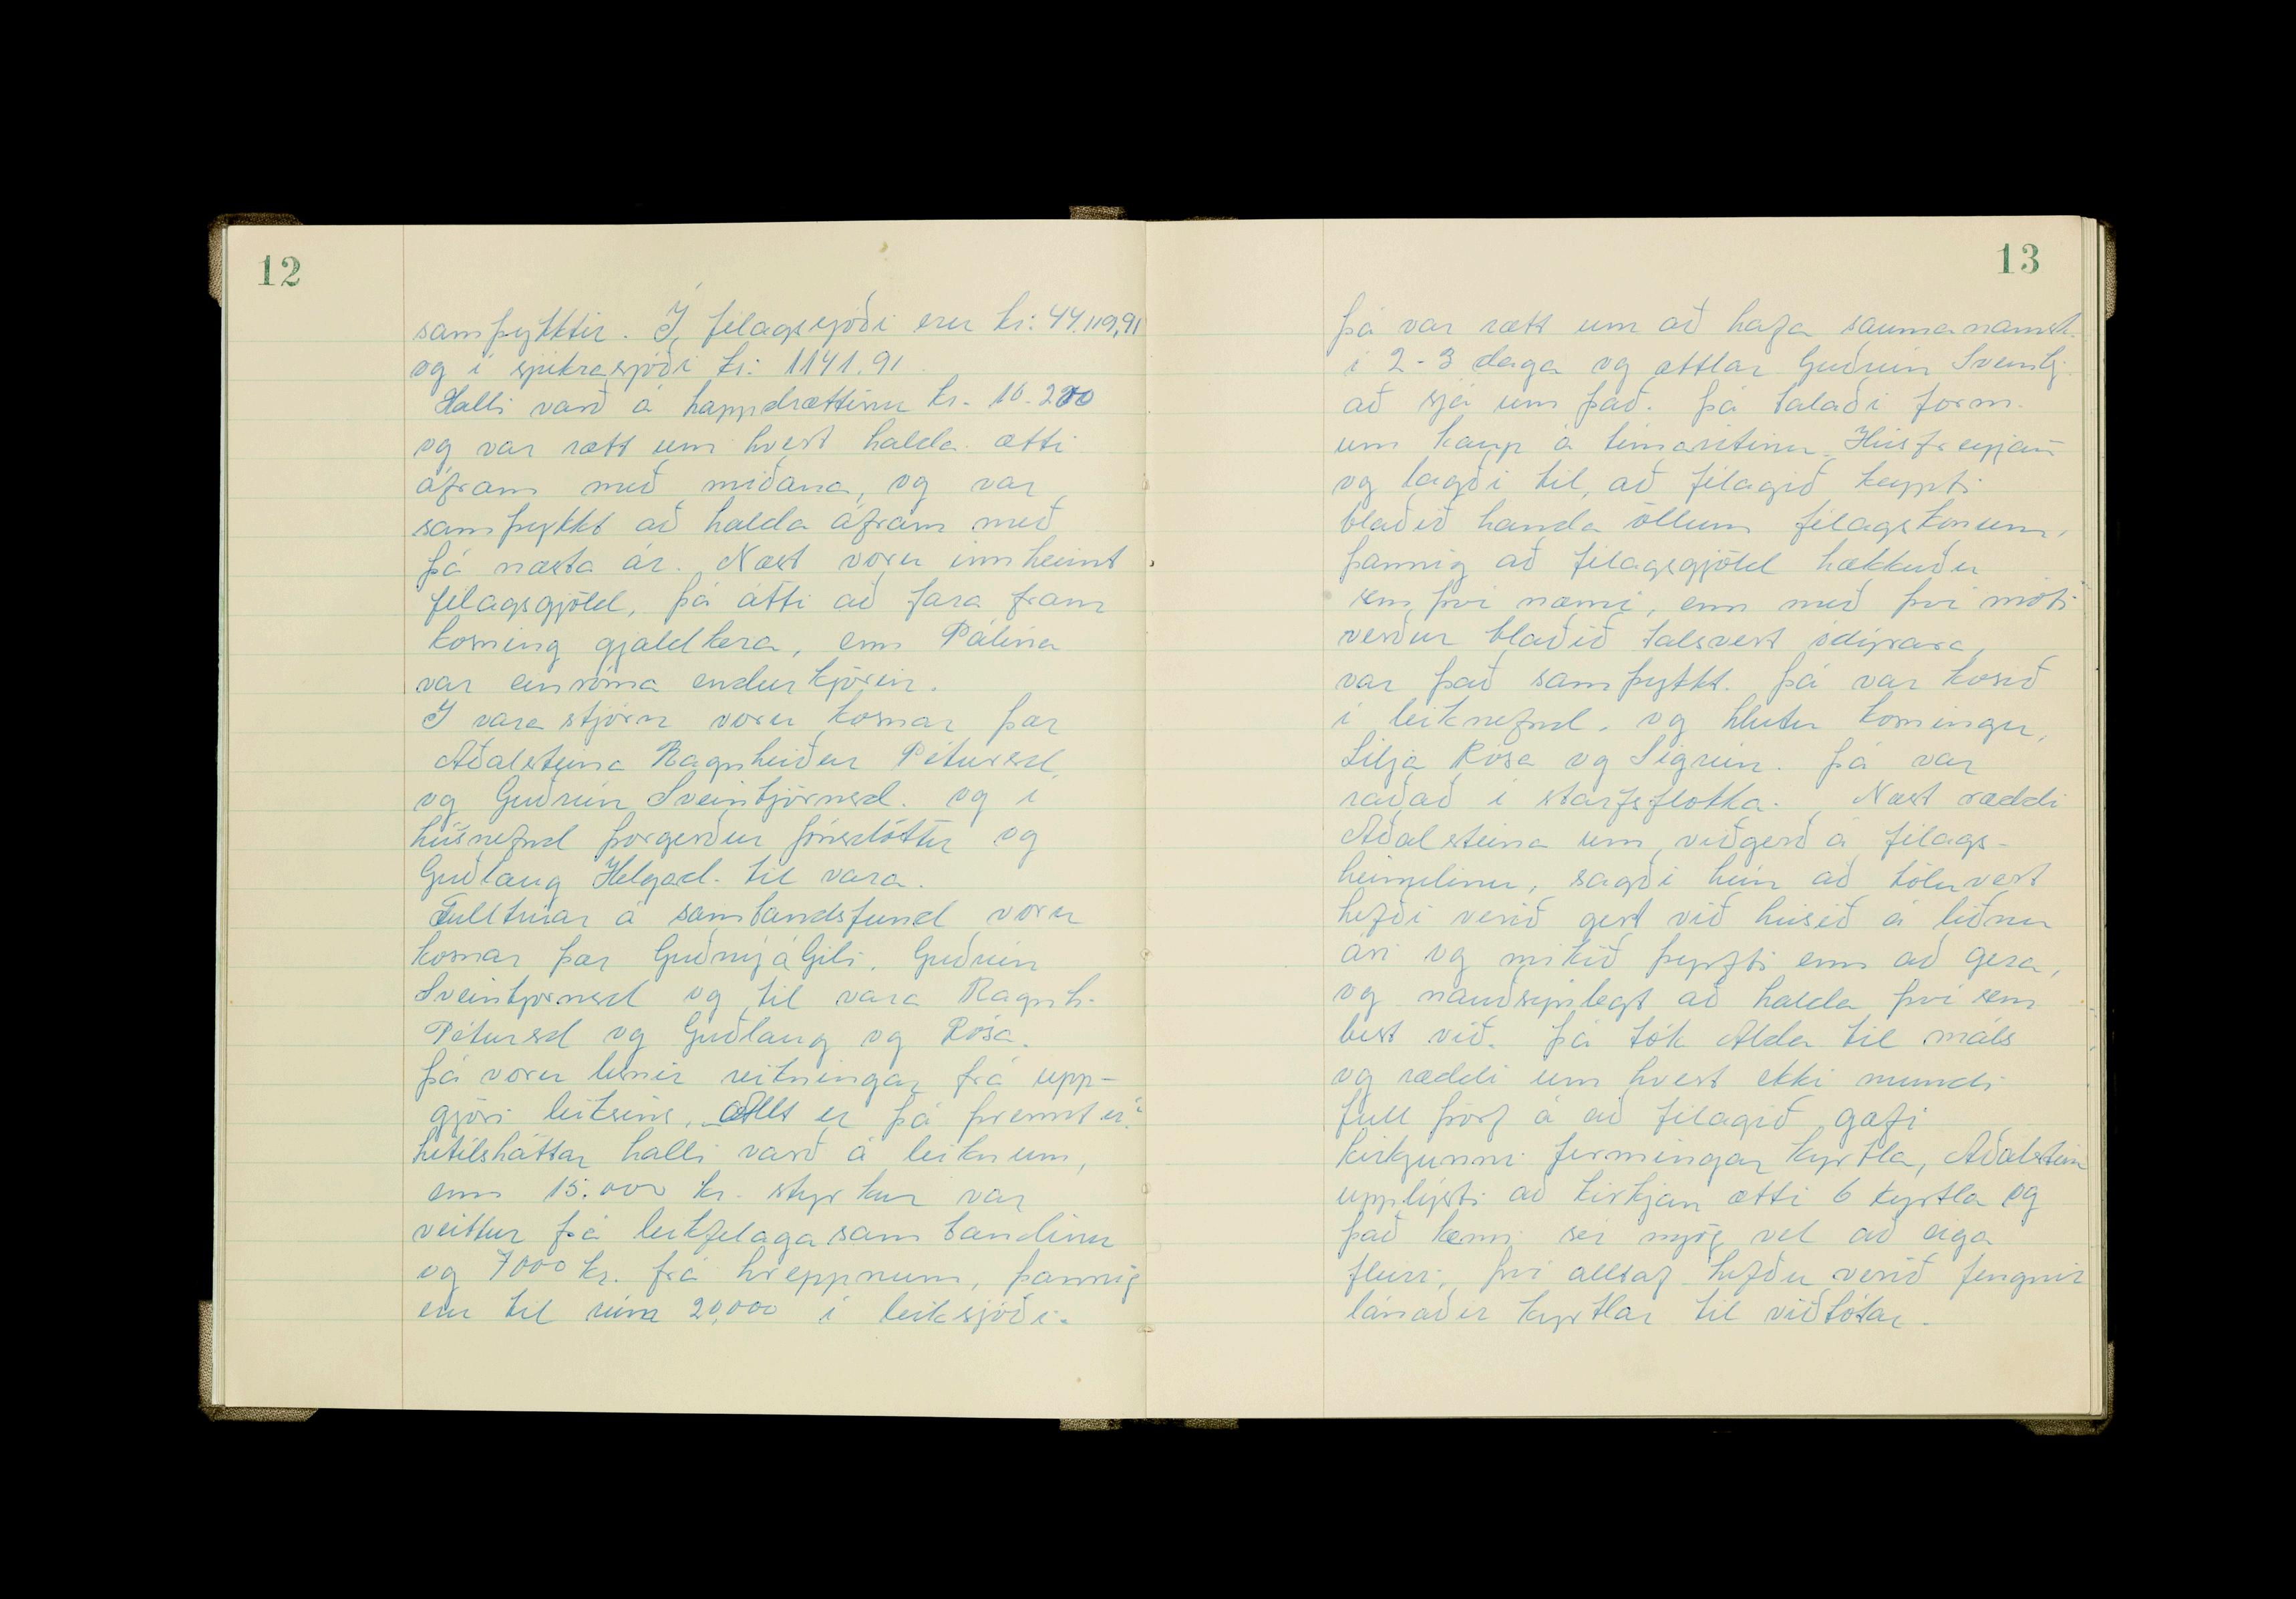 12
samþykktir. Í félagssjóði eru kr: 44.119,91
og í sjúkrasjóði kr: 1141.91
Halli varð á happdrættinu kr. 10.200
og var rætt um hvert halda ætti
áfram með miðana, og var
samþykkt að halda áfram með
þá næsta ár. Næst voru innheimt
félagsgjöld, þá átti að fara fram
kosning gjaldkera, enn Pálína
var einróma endurkjörin.
Í vara stjórn voru kosnar þær
Aðalsteina Ragnheiður Pétursd.
og Guðrún Sveinbjörnsd. og í
húsnefnd Þorgerður Jónsdóttir og
Guðlaug Helgad. til vara.
Fulltrúar á sambandsfund voru
kosnar þær Guðný á Gili. Guðrún
Sveinbjörnsd og til vara Ragnh.
Pétursd og Guðlaug og Rósa.
Þá voru lesnir reikningar frá upp-
gjöri leiksins, Allt er þá þrennt er?
lítilsháttar halli varð á leiknum,
enn 15.000 kr. styrkur var
veittur frá leikfélagasambandinu
og 7000 kr. frá hreppnum, þannig
eru til rúm 20.000 í leiksjóði.
13
Þá var rætt um að hafa saumanámsk.
í 2-3 daga og ættlar Guðrún Sveinbj.
að sjá um það. Þá talaði form.
um kaup á tímaritinu Húsfreyjan
og lagði til, að félagið keypti
blaðið handa öllum félagskonum,
þannig að félagsgjöld hækkuðu
sem því næmi, enn með því móti
verður blaðið talsvert ódýrara,
var það samþykkt. Þá var kosið
í leiknefnd. og hlutu kosningu,
Lilja Rósa og Sigrún. Þá var
raðað í starfsflokka. Næst ræddi
Aðalsteina um viðgerð á félags-
heimilinu, sagði hún að töluvert
hefði verið gert við húsið á liðnu
ári og mikið þyrfti enn að gera,
og nauðsynlegt að halda því sem
best við. Þá tók Alda til máls
og ræddi um hvert ekki mundi
full þörf á að félagið gæfi
kirkjunni fermingar kyrtla, Aðalstein
upplýsti að kirkjan ætti 6 kyrtla og
það kæmi sér mjög vel að eiga
fleiri, því alltaf hefðu verið fengnir
lánaðir kyrtlar til viðbótar.